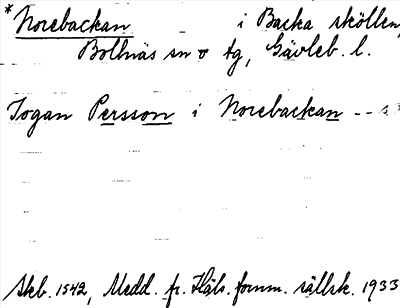 *Norebackan i Backa sköllen,
Bollnäs sn o tg, Gävleb. l.
Jogan Persson i Norebackan --
Skb. 1542, Medd. fr. Häls. fornm. sällsk. 1933